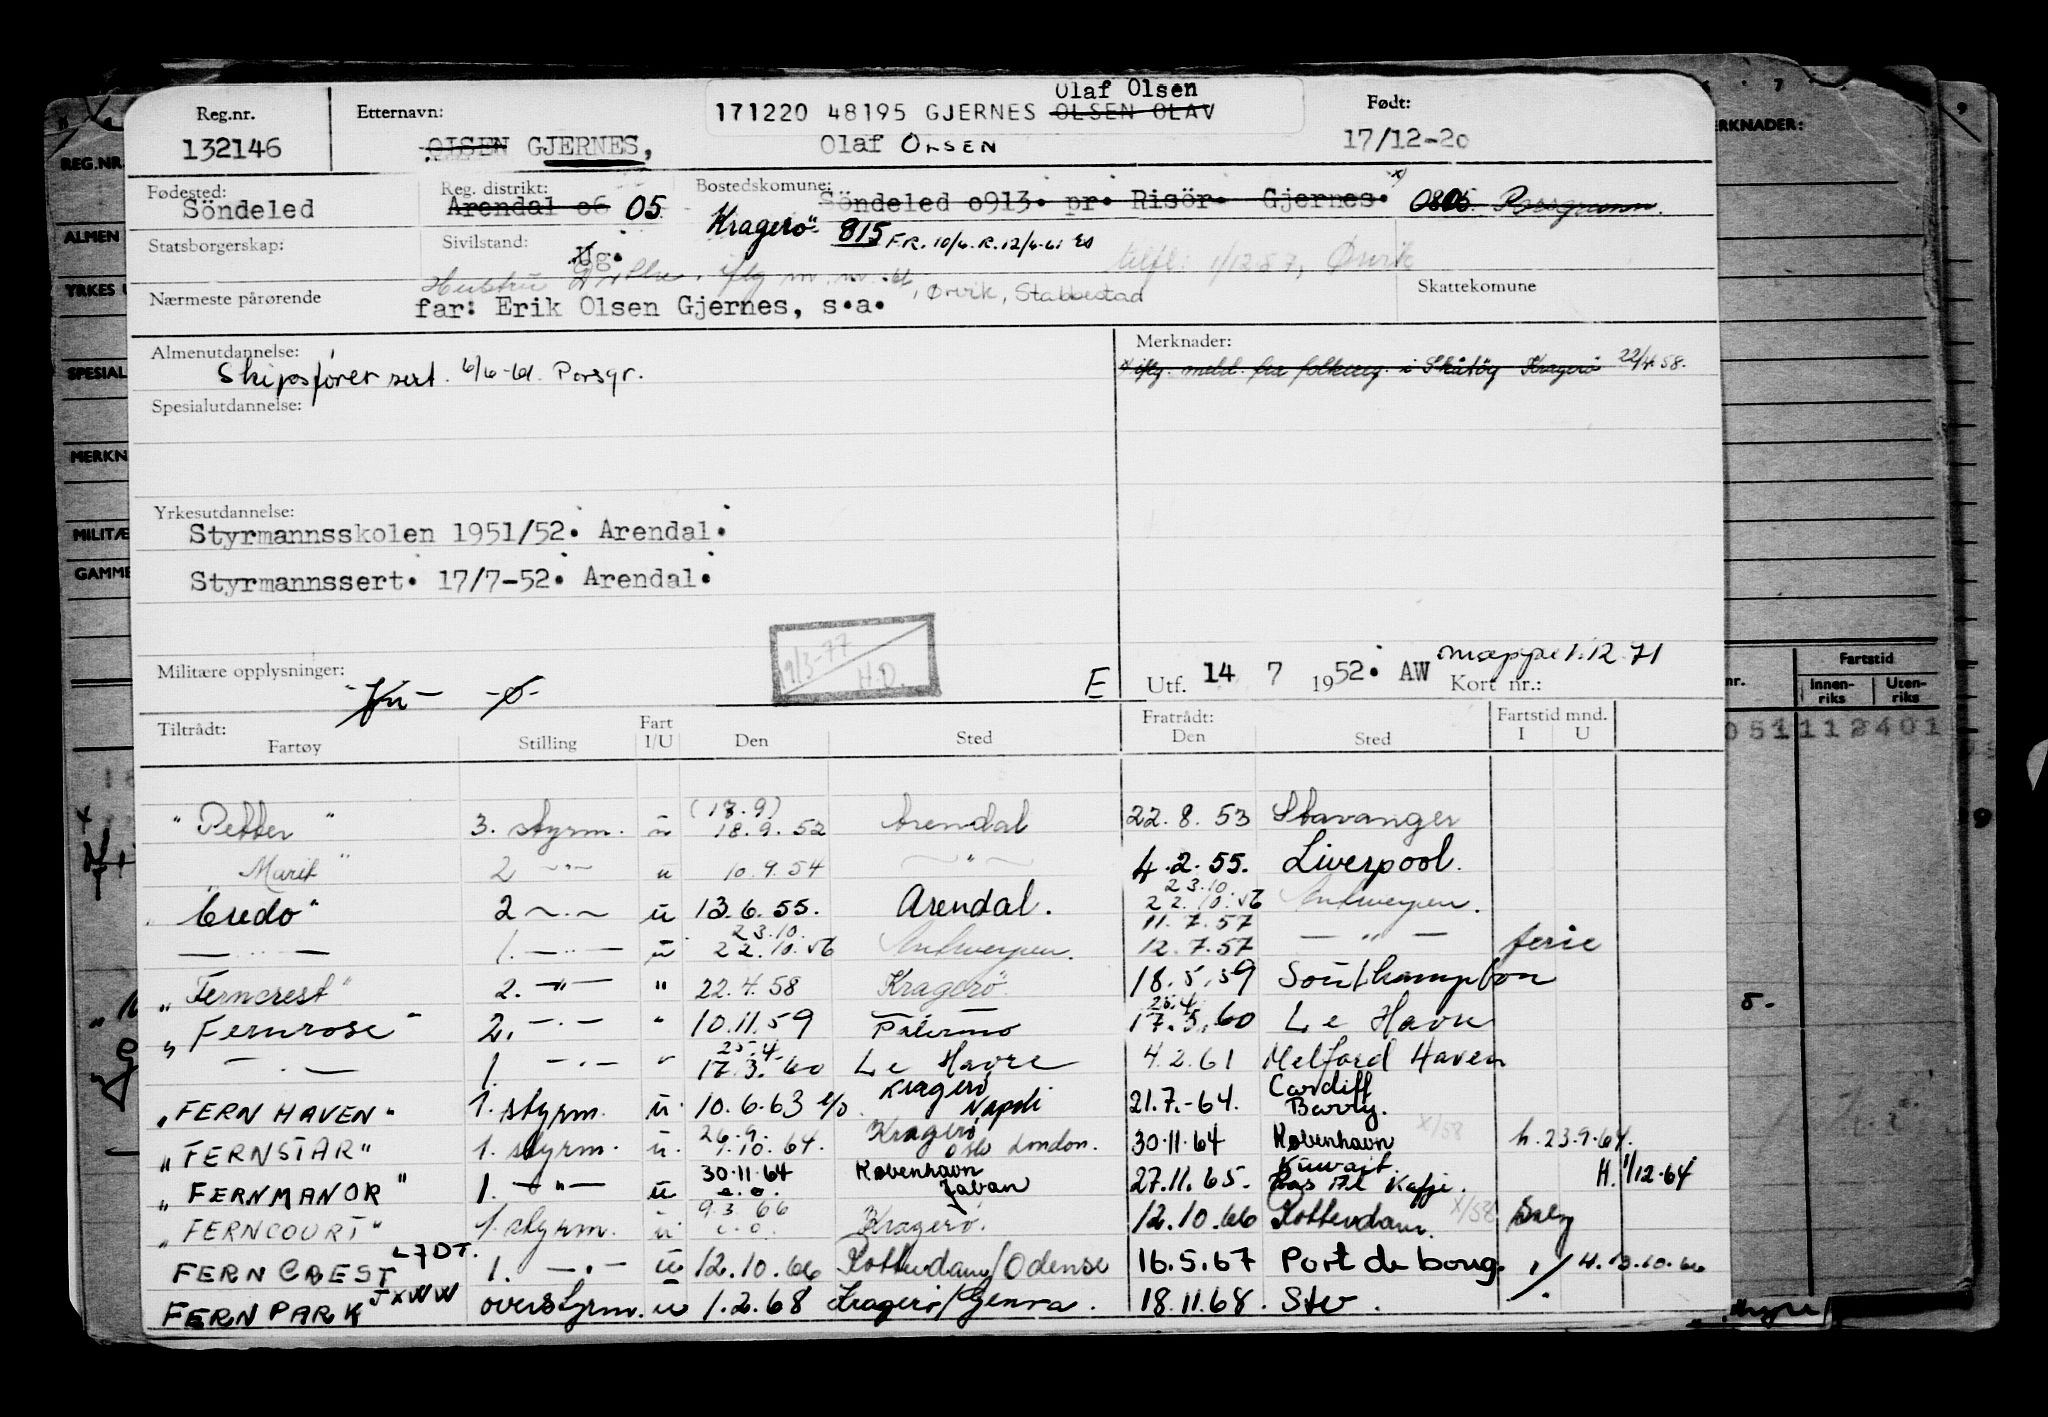 Reg.nr. Etternavn: Født:
Olaf Olsen
171220 48195 GJERNES OLSEN OLAV
132146 OLSEN GJERNES, Olaf OLSEN 17/12-20
Fødested: Reg. distrikt: Bostedskomune:
Söndeled Arendal o6 05 Söndeled o913. pr. Risör. Gjernes. x) Porsgrunn.
Kragerö 815 F.R. 10/6. R. 12/6-61
Statsborgerskap: Sivilstand: Ug.
tilfl. 1/12 57, Ørvik
Hustru
, Ørvik, Stabbestad
Nærmeste pårørende far: Erik Olsen Gjernes, s.a. Skattekomune
Almenutdannelse: Merknader:
Skipsfører sert. 6/6-61. Porsgr. x iflg. meld. fra folkereg. i Skåtöy Kragerö 22/4 58.
Spesialutdannelse:
Yrkesutdannelse:
Styrmannsskolen 1951/52. Arendal.
Styrmannssert. 17/7-52. Arendal.
9/3-77
H.O.
Militære opplysninger: -Ø- E Utf. 14 7 1952. AW Kort nr.: mappe 1.12.71
Tiltrådt: Fart Fratrådt: Fartstid mnd.
Fartøy Stilling I/U Den Sted Den Sted I U
"Petter" 3. styrm. u (17.9) 18.9.52 Arendal 22.8.53 Stavanger
Marit" 2 -"- u 10.9.54 -"- 4.2.55. Liverpool.
"Credo" 2 -"- u 13.6.55. Arendal. 23.10. 22.10.56 Antwerpen.
-"- 1. -"- u 23.10. 22.10.56 Antwerpen. 11.7.57 12.7.57 -"- ferie
"Ferncrest" 2. -"- " 22.4.58 Kragerö 18.5.59 Southampton
"Fernrose" 2. -"- " 10.11.59 Palermo 25.4. 17.3.60 Le Havre
-"- 1. -"- " 25.4. 17.3.60 Le Havre 4.2.61 Melford Haven
"FERN HAVEN" 1. styrm. u. 10.6.63 e/o. Kragerö Napoli 21.7.-64. Cardiff Barry.
"FERNSTAR" 1. styrm. u. 26.9. 9.10.64. Kragerø Oslo London. 30.11.64 København x/58 h.23.9.64.
"FERNMANOR" 1. -"- u 30.11.64 e.o. København Japan 27.11.65. Kuwait. H. 1/12-64
"FERNCOURT" 1. styrm. u 9.3.66 e.o. Kragerø. 12.10.66 Rotterdam. x/58
FERNCREST L7DT. 1. -"- u 12.10.66 Rotterdam/Odense 16.5.67 Port de boug. 4.13.10.66
FERNPARK JXWW overstyrm. u 1.2.68 Kragerö/Genva. 18.11.68. Stv.
REG.NR.
ALMEN
YRKES U
SPESIAL
MERKN
MILITÆ
GAMME
RKNADER:
nr. Fartstid
Innenriks Utenriks
051112401